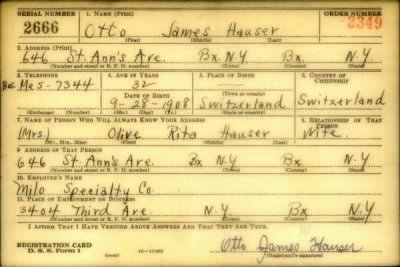 SERIAL NUMBER 1. NAME (Print) ORDER NUMBER
2666 Otto James Hauser 2349
(First) (Middle) (Last)
2. ADDRESS (Print)
646 St. Ann's Ave. Bx. N.Y Bx. N.Y
(Number and street or R. F. D. number) (Town) (County) (State)
3. TELEPHONE 4. AGE IN YEARS 5. PLACE OF BIRTH 6. COUNTRY OF CITIZENSHIP
Me 5-7344 32
DATE OF BIRTH
9-28-1908 Switzerland Switzerland
(Exchange) (Number) (Mo.) (Day) (Yr.) (State or country)
7. NAME OF PERSON WHO WILL ALWAYS KNOW YOUR ADDRESS 8. RELATIONSHIP OF THAT PERSON
(Mrs.) Olive Rita Hauser Wife.
(Mr., Mrs., Miss) (First) (Middle) (Last)
9. ADDRESS OF THAT PERSON
646 St. Ann's Ave. Bx N.Y Bx. N.Y
(Number and street or R. F. D. number) (Town) (County) (State)
10. EMPLOYER'S NAME
Milo Specialty Co.
11. PLACE OF EMPLOYMENT OR BUSINESS
3404 Third Ave N.Y Bx N.Y
(Number and street or R. F. D. number) (Town) (County) (State)
I AFFIRM THAT I HAVE VERIFIED ABOVE ANSWERS AND THAT THEY ARE TRUE.
REGISTRATION CARD
D. S. S. Form 1 Otto James Hauser
(Registrant's signature)